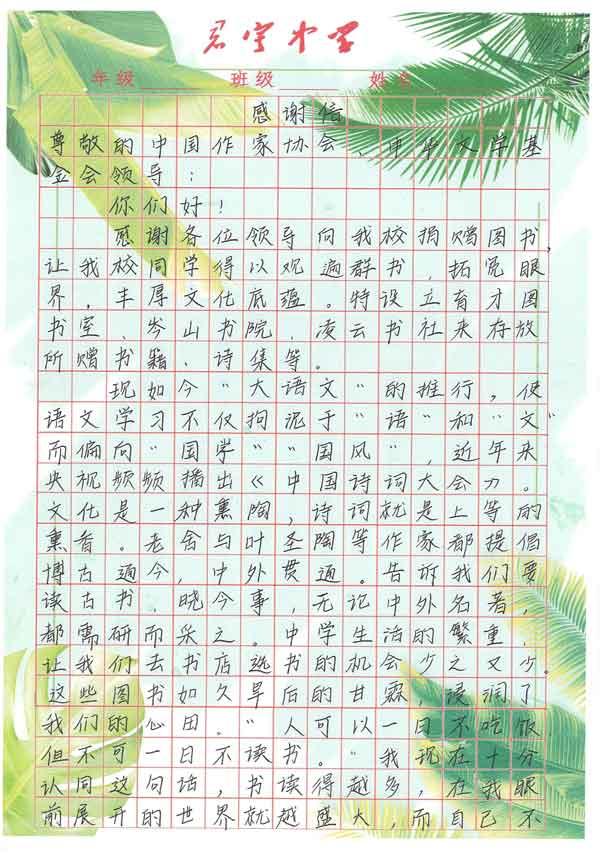 君宇中学
年级 班级 姓名
感谢信
尊敬的中国作家协会、中华文学基
金会领导:
你们好!
感谢各位领导向我校捐赠图书,
让我校同学得以观遍群书,拓宽眼
界,丰厚文化底蕴。特设立育才图
书室、岑山书院,凌云书社来存放
所赠书籍、诗集等。
现如今“大语文”的推行,使
语文学习不仅拘泥于“语”和“文”
而偏向“国学”“国风”,近年来
央视频频播出《中国诗词大会》。
文化是一种熏陶,诗词就是上等的
熏香。老舍与叶圣陶等作家都提倡
博古通今,中外贯通。告诉我们要
读古书,晓今事,无记中外名著,
都需研而采之。中学生活的繁重,
让我们去书店选书的机会少之又少。
这些图书如久旱后的甘霖,浸润了
我们的心田。“人可以一日不吃饭
但不可一日不读书。”我现在十分
认同这句话,书读得越多,在我眼
前展开的世界就越盛大,而自己不